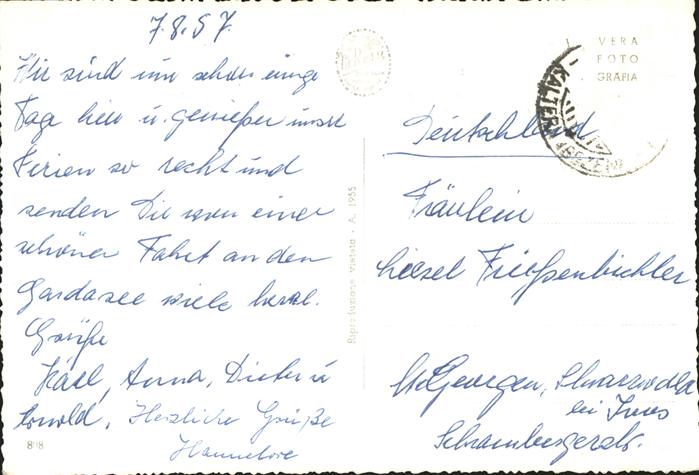 7.8.57
Wir sind nun schon einige
Tage hier u. genießen unsre
Ferien so recht und
senden Dir von einer
schönen Fahrt an den
Gardasee viele herzl.
Grüße
Karl, Anna, Dieter u
Herzliche Grüße
Hannelore
898
Riproduzione vietata - A. 1955
VERA
FOTO
GRAFIA
KALTERN
Deutschland
Fräulein
Liesel Frießenbichler
St. Georgen, Schwarzwald
bei
Schrambergerstr.